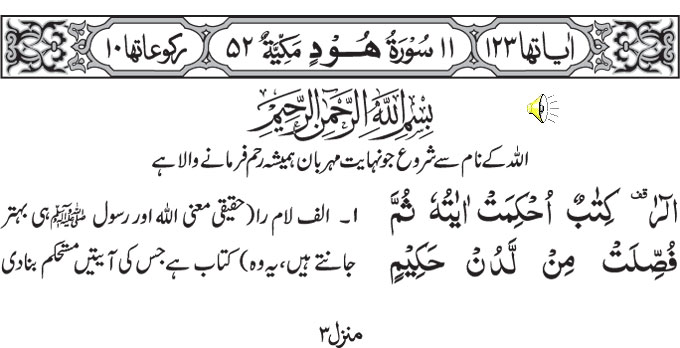 اٰیاتھا ۱۲۳ ۱۱ سُوْرَۃُ ھُوْدٍ مَکِّیَّۃٌ ۵۲ رکوعاتھا ۱۰
بِسْمِ اللّٰہِ الرَّحْمٰنِ الرَّحِیْمِ
اللہ کے نام سے شروع جو نہایت مہربان ہمیشہ رحم فرمانے والا ہے
الٓرٰ قف کِتٰبٌ اُحْکِمَتْ اٰیٰتُہٗ ثُمَّ
فُصِّلَتْ مِنْ لَّدُنْ حَکِیْمٍ
۱۔ الف لام را (حقیقی معنی اللہ اور رسول ﷺ ہی بہتر
جانتے ہیں، یہ وہ) کتاب ہے جس کی آیتیں مستحکم بنا دی
منزل ۳